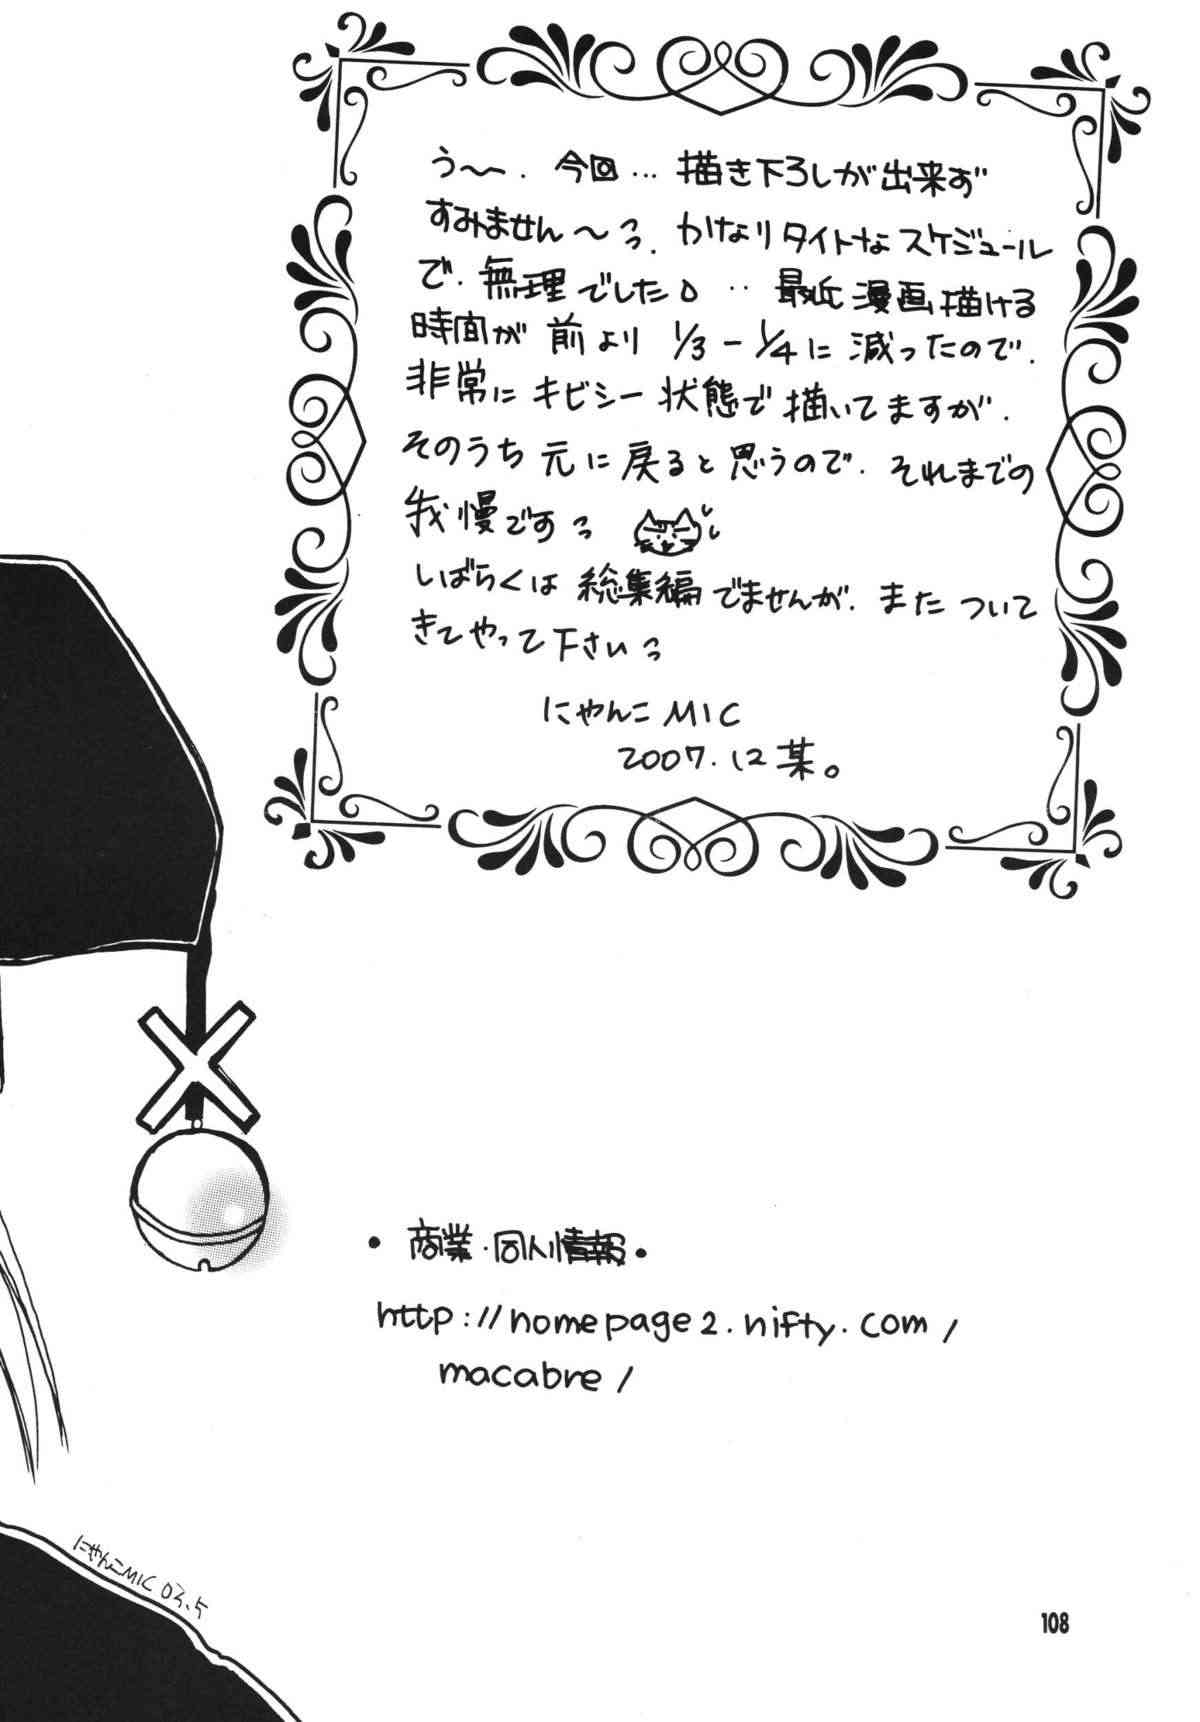 う〜. 今回… 描き下ろしが出来ず
すみません〜っっ. かなりタイトなスケジュール
で. 無理でした。‥ 最近漫画描ける
時間が 前より 1/3-1/4に 減ったので.
非常に キビシー 状態で 描いてますが.
そのうち 元に 戻ると 思うので. それまでの
我慢ですっ
しばらくは 総集編でませんが. また ついて
きてやって下さいっっ
にゃんこ MIC
2007.12 某。
・商業・同人情報・
http://homepage2.nifty.com/
macabre/
にゃんこMIC 03.5
108